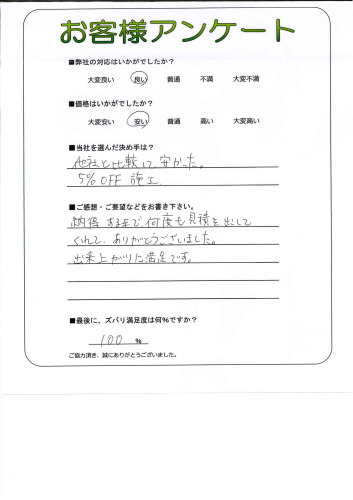 お客様アンケート
■弊社の対応はいかがでしたか？
大変良い 良い 普通 不満 大変不満
■価格はいかがでしたか？
大変安い 安い 普通 高い 大変高い
■当社を選んだ決め手は？
他社と比較して、安かった。
5％OFF 施工
■ご感想・ご要望などをお書き下さい。
納得するまで、何度も見積を出して
くれて、ありがとうございました。
出来上がりに満足です。
■最後に、ズバリ満足度は何％ですか？
100 ％
ご協力頂き、誠にありがとうございました。